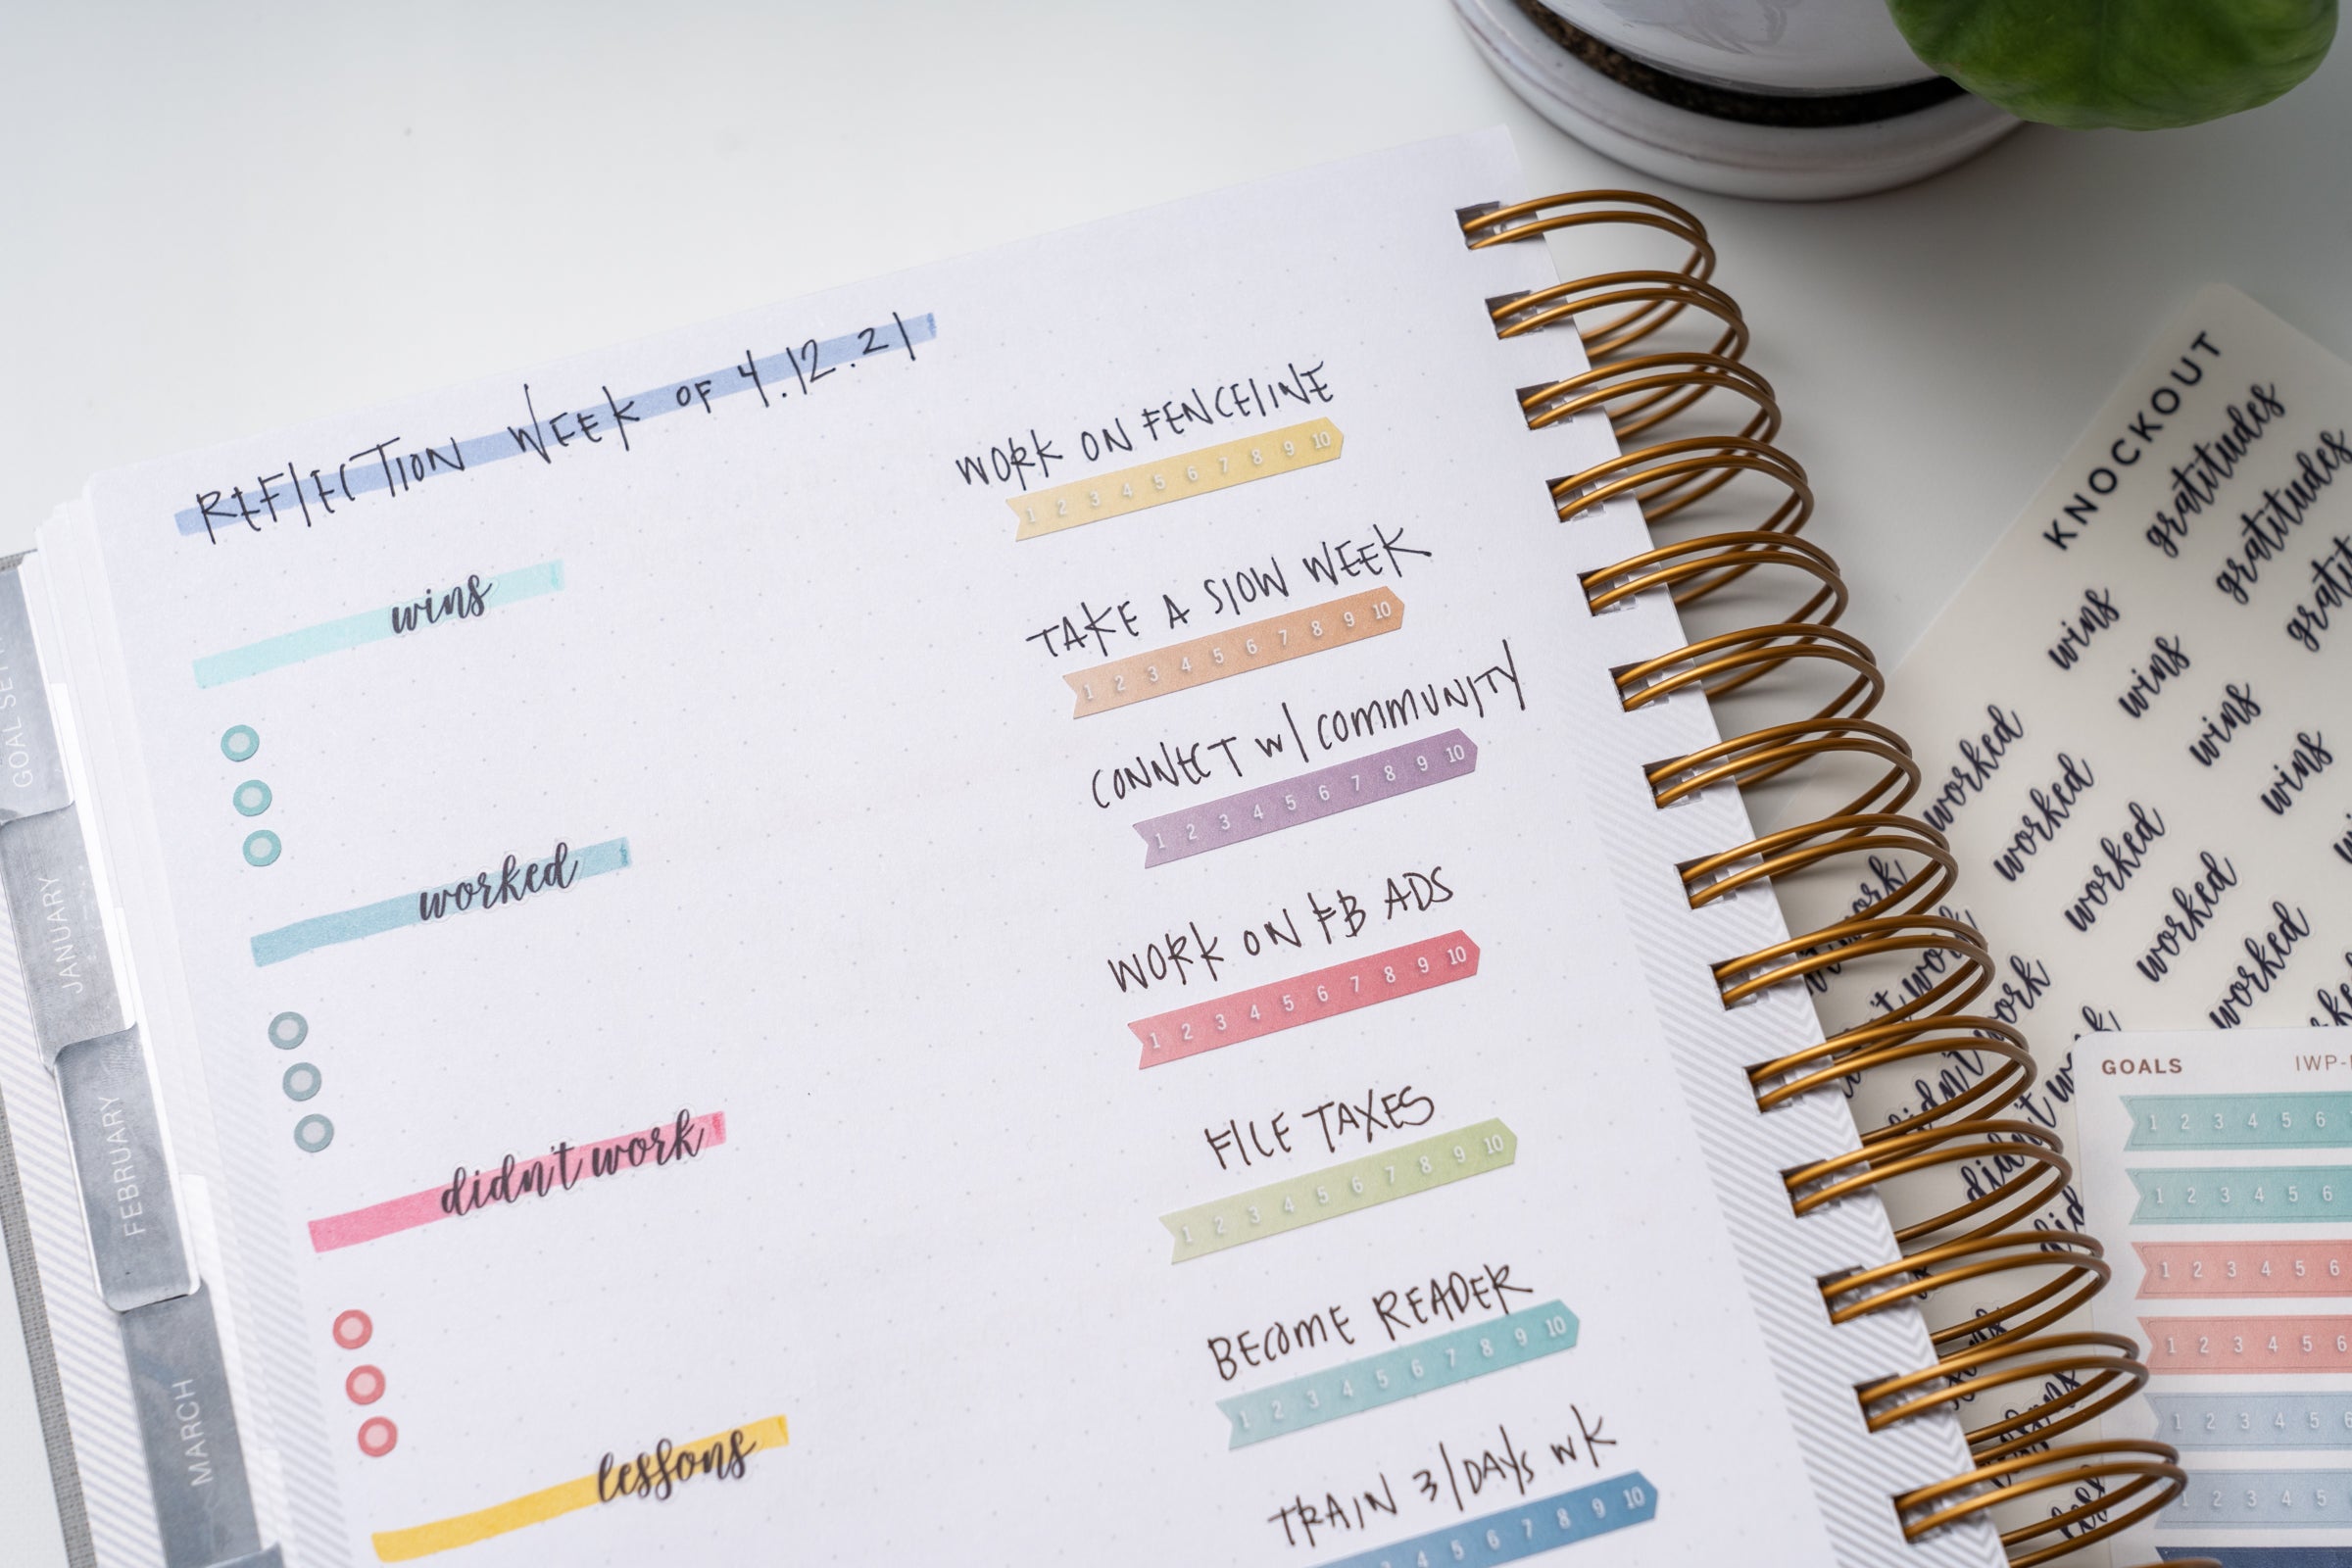 REFLECTION WEEK OF 4.12.21
wins
worked
didn't work
lessons
WORK ON FENCELINE
1 2 3 4 5 6 7 8 9 10
TAKE A SLOW WEEK
1 2 3 4 5 6 7 8 9 10
CONNECT W/ COMMUNITY
1 2 3 4 5 6 7 8 9 10
WORK ON FB ADS
1 2 3 4 5 6 7 8 9 10
FILE TAXES
1 2 3 4 5 6 7 8 9 10
BECOME READER
1 2 3 4 5 6 7 8 9 10
TRAIN 3/DAYS WK
4 5 6 7 8 9 10
GOAL
JANUARY
FEBRUARY
MARCH
KNOCKOUT
gratitudes
gratitudes
wins
wins
wins
wins
worked
worked
worked
worked
worked
didn't work
GOALS IWP-
1 2 3 4 5 6
1 2 3 4 5 6
1 2 3 4 5 6
1 2 3 4 5 6
1 2 3 4 5 6
1 2 3 4 5